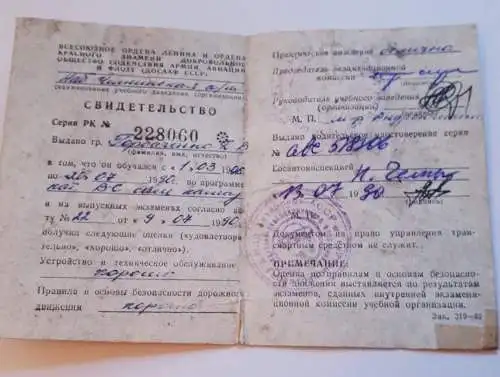 ВСЕСОЮЗНОЕ ОРДЕНА ЛЕНИНА И ОРДЕНА
КРАСНОГО ЗНАМЕНИ ДОБРОВОЛЬНОЕ
ОБЩЕСТВО СОДЕЙСТВИЯ АРМИИ, АВИАЦИИ
И ФЛОТУ (ДОСААФ СССР)
(наименование учебного заведения, организации)
СВИДЕТЕЛЬСТВО
Серия РК № 228060
Выдано гр.
(фамилия, имя, отчество)
в том, что он обучался с 1.03 1990
по 20.07 1990 по программе
кат ВС
и на выпускных экзаменах согласно
ту № 22 от «9» 07 1990
получил следующие оценки («удовлетвори-
тельно», «хорошо», «отлично»)
Устройство и техническое обслуживание
хорошо
Правила и основы безопасности дорожного
движения хорошо
Практическое вождение отлично
Председатель экзаменационной
комиссии
Руководитель учебного заведения
(организации)
М. П.
Выдано водительское удостоверение серии
№ АВС 578206
Госавтоинспекцией
13 07 1990
(подпись)
Документом на право управления тран-
спортным средством не служит.
ПРИМЕЧАНИЕ:
Оценка по правилам и основам безопасно-
сти движения выставляется по результатам
экзаменов, сданных внутренней экзамена-
ционной комиссии учебной организации.